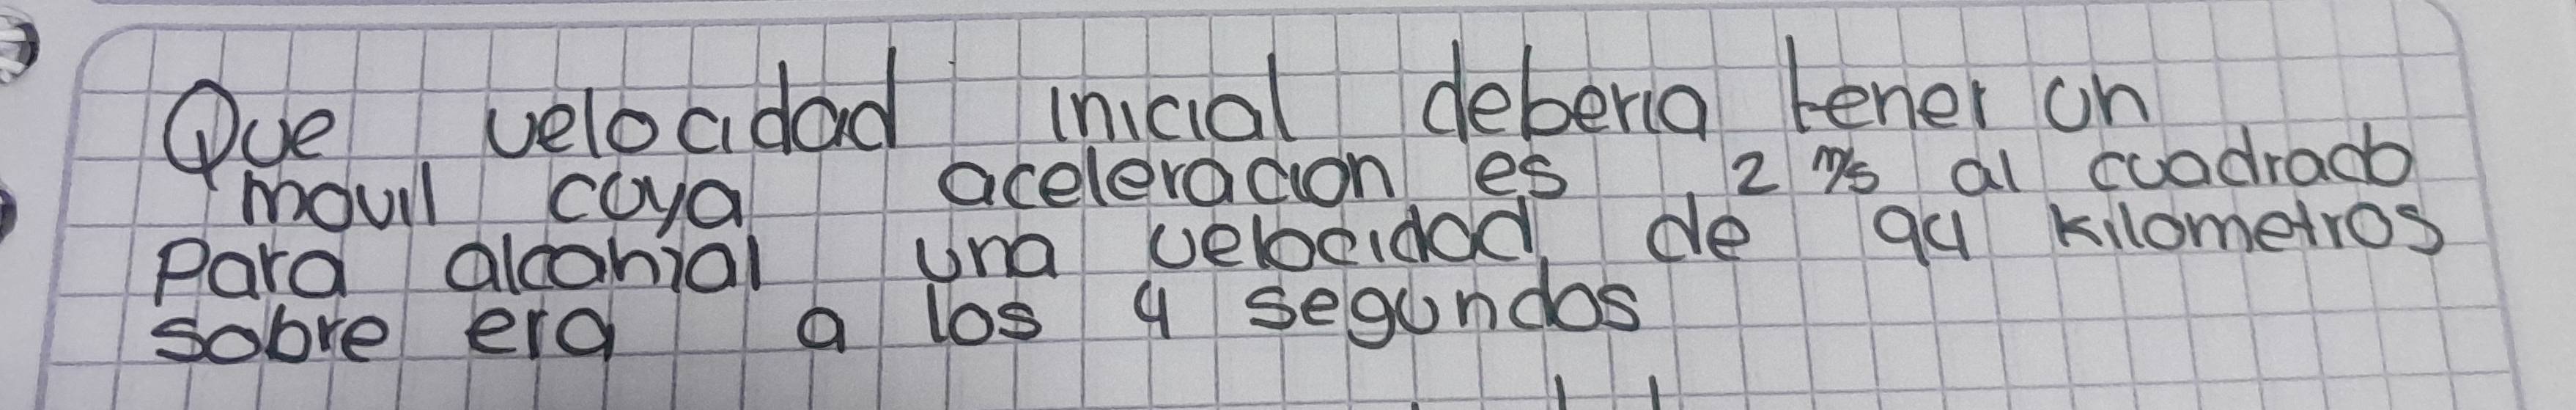 Que velocidad inicial deberia tener un
movil cuya aceleracion es 2 m/s al cuadrado
Para alcanzar una velocidad de 94 kilometros
sobre era a los 4 segundos